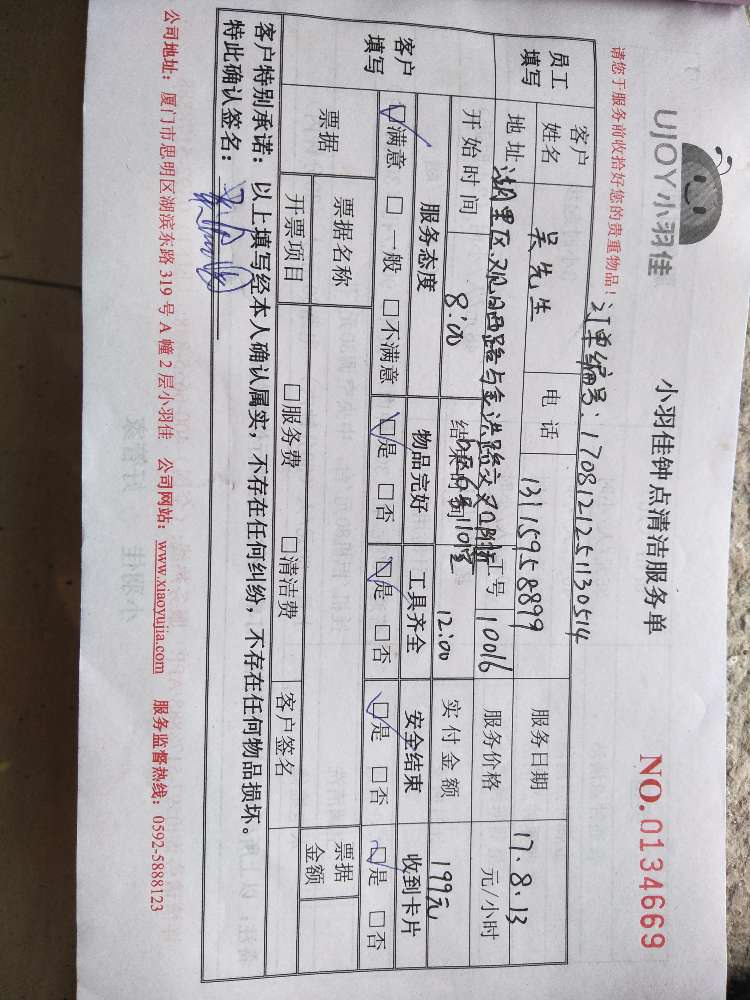 UJOY小羽佳
小羽佳钟点清洁服务单
NO.0134669
请您于服务前收拾好您的贵重物品！
订单编号：1708121251130514
员工填写
客户姓名 吴先生 电话 13115958899 服务日期 17.8.13
地址 湖里区 路与 路交叉口附近 工号 10016 服务价格 元/小时
开始时间 8:00 结束时间 12:00 实付金额 199元
客户填写
服务态度 物品完好 工具齐全 安全结束 收到卡片
□满意 □一般 □不满意 □是 □否 □是 □否 □是 □否 □是 □否
票据 票据名称 票据金额
开票项目 □服务费 □清洁费 客户签名
客户特别承诺：以上填写经本人确认属实，不存在任何纠纷，不存在任何物品损坏。
特此确认签名：
公司地址：厦门市思明区湖滨东路 319 号 A 幢 2 层小羽佳 公司网站：www.xiaoyujia.com 服务监督热线：0592-5888123